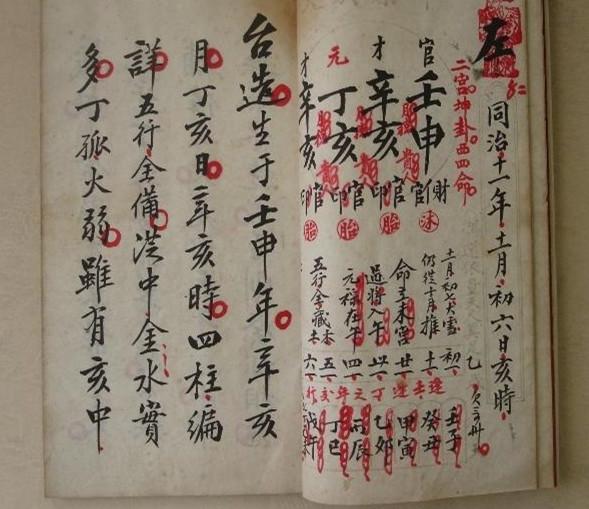 左
同治十一年十一月初六日亥時
二宮坤卦西四命
官
壬申
財
官
沐
才
辛亥
官
印
胎
元
丁亥
官
印
胎
才
辛亥
官
印
胎
十一月初七大雪
仍從十月推
命立未宮
過將入午
元祿在午
初一
十一
廿一
卅一
四一
五一
六一
壬子
癸丑
甲寅
乙卯
丙辰
丁巳
戊午
台造生于壬申年辛亥
月丁亥日辛亥時四柱編
詳五行全備洪中金水實
多丁孤火弱雖有亥中